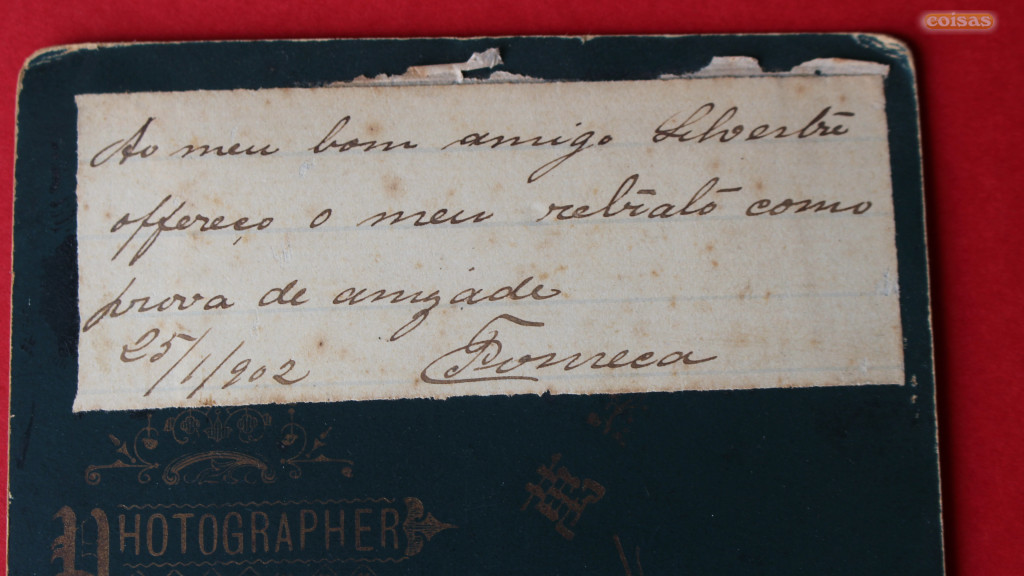 coisas
Ao meu bom amigo Silvestre
offereço o meu retrato como
prova de amizade
25/1/902 Fonseca
PHOTOGRAPHER